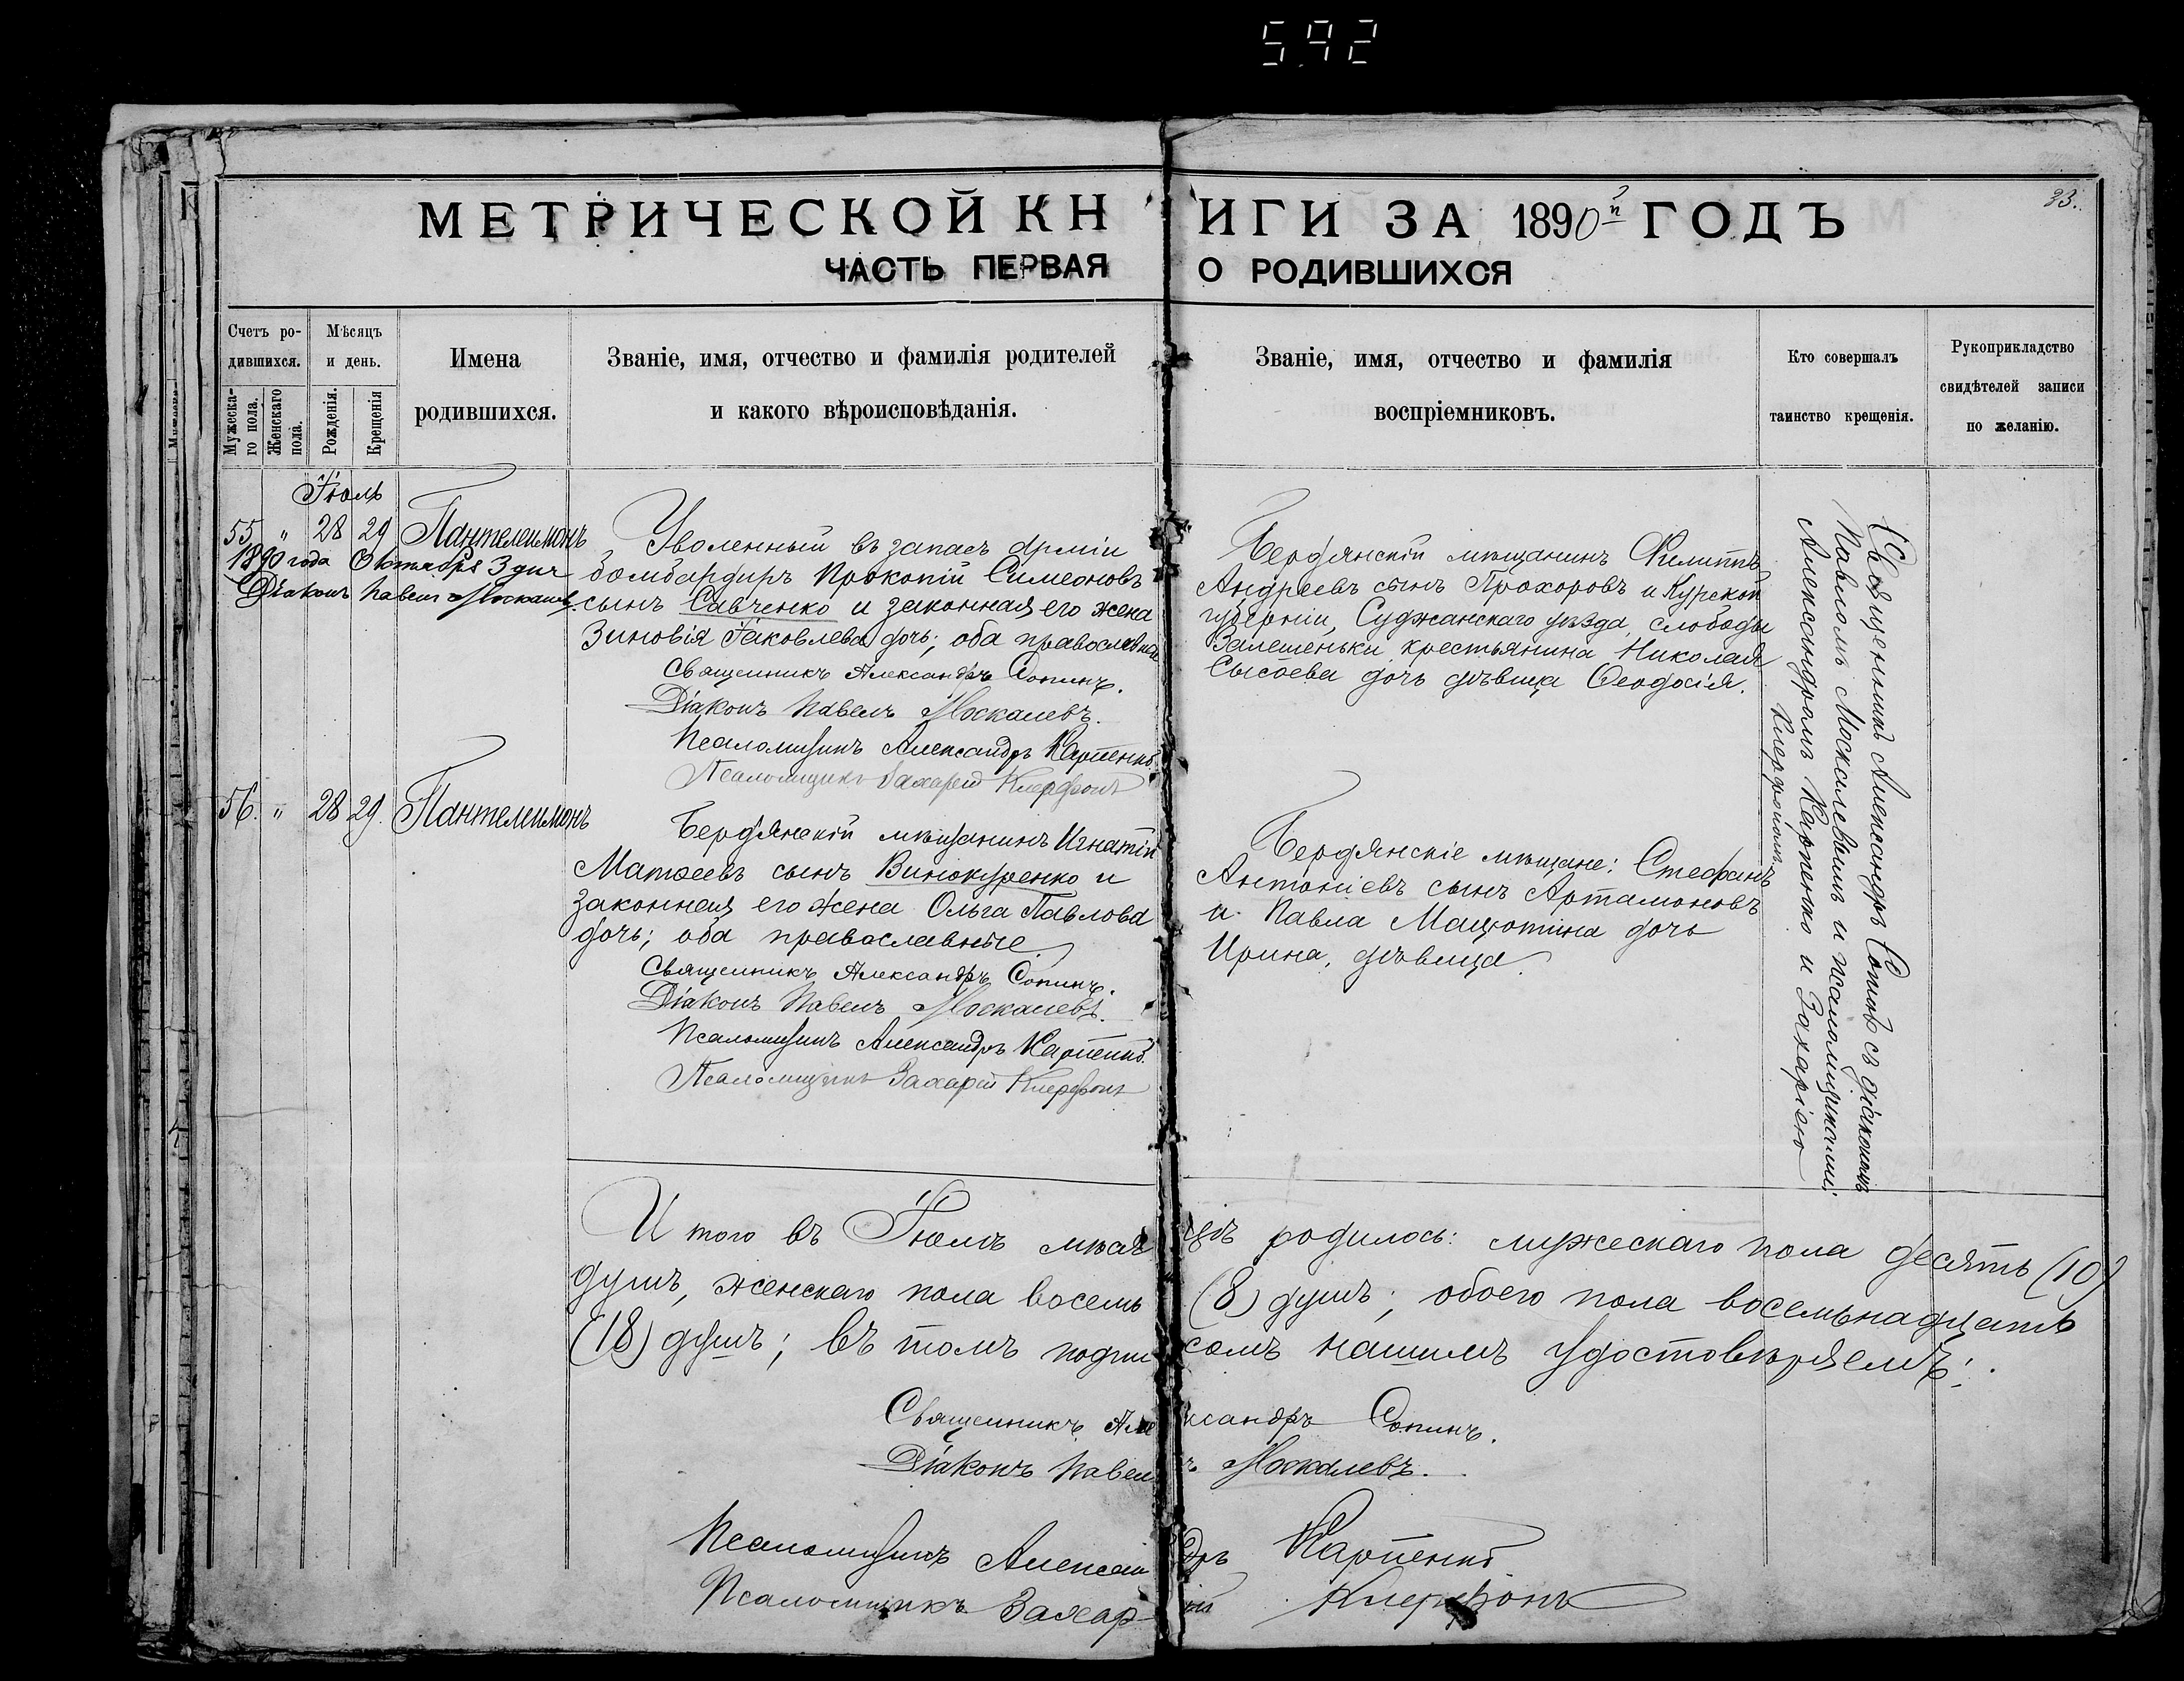 592
33.
МЕТРИЧЕСКОЙ КНИГИ ЗА 1890й ГОДЪ
ЧАСТЬ ПЕРВАЯ О РОДИВШИХСЯ
Счетъ ро-
дившихся.
Мужеска-
го пола.
Женскаго
пола.
Мѣсяцъ
и день.
Рожденія.
Крещенія
Имена
родившихся.
Званіе, имя, отчество и фамилія родителей
и какого вѣроисповѣданія.
Званіе, имя, отчество и фамилія
воспріемниковъ.
Кто совершалъ
таинство крещенія.
Рукоприкладство
свидѣтелей записи
по желанію.
Іюль
55 " 28 29 Пантелеимонъ
1890 года Октября 3 дня
Діаконъ Павелъ Москалевъ
Уволенный въ запасъ арміи
бомбардиръ Прокопій Симеоновъ
сынъ Савченко и законная его жена
Зиновія Іаковлева дочь; оба православные
Священникъ Александръ Сопинъ.
Діаконъ Павелъ Москалевъ.
Псаломщикъ Александръ Карпенко
Псаломщикъ Захарій Клерфонъ
Бердянскій мѣщанинъ Филиппъ
Андреевъ сынъ Прохоровъ и Курской
губерніи, Суджанскаго уѣзда, слободы
Залешеньки крестьянина Николая
Сысоева дочь дѣвица Ѳеодосія.
Священникъ Александръ Сопинъ съ діакономъ
Павломъ Москалевымъ и псаломщиками:
Александромъ Карпенко и Захаріею
Клерфономъ.
56. " 28 29. Пантелеимонъ
Бердянскій мѣщанинъ Игнатій
Матѳеевъ сынъ Винокуренко и
законная его жена Ольга Павлова
дочь; оба православные.
Священникъ Александръ Сопинъ.
Діаконъ Павелъ Москалевъ.
Псаломщикъ Александръ Карпенко
Псаломщикъ Захарій Клерфонъ
Бердянскіе мѣщане: Стефанъ
Антоніевъ сынъ Артамоновъ
и Павла Мацютина дочь
Ирина, дѣвица.
И того въ Іюлѣ мѣсяцѣ родилось: мужескаго пола десять (10)
душъ, женскаго пола восемь (8) душъ; обоего пола восемьнадцать
(18) душъ; въ томъ подписомъ нашимъ удостовѣряемъ:
Священникъ Александръ Сопинъ.
Діаконъ Павелъ Москалевъ.
Псаломщикъ Александръ Карпенко
Псаломщикъ Захарій Клерфонъ